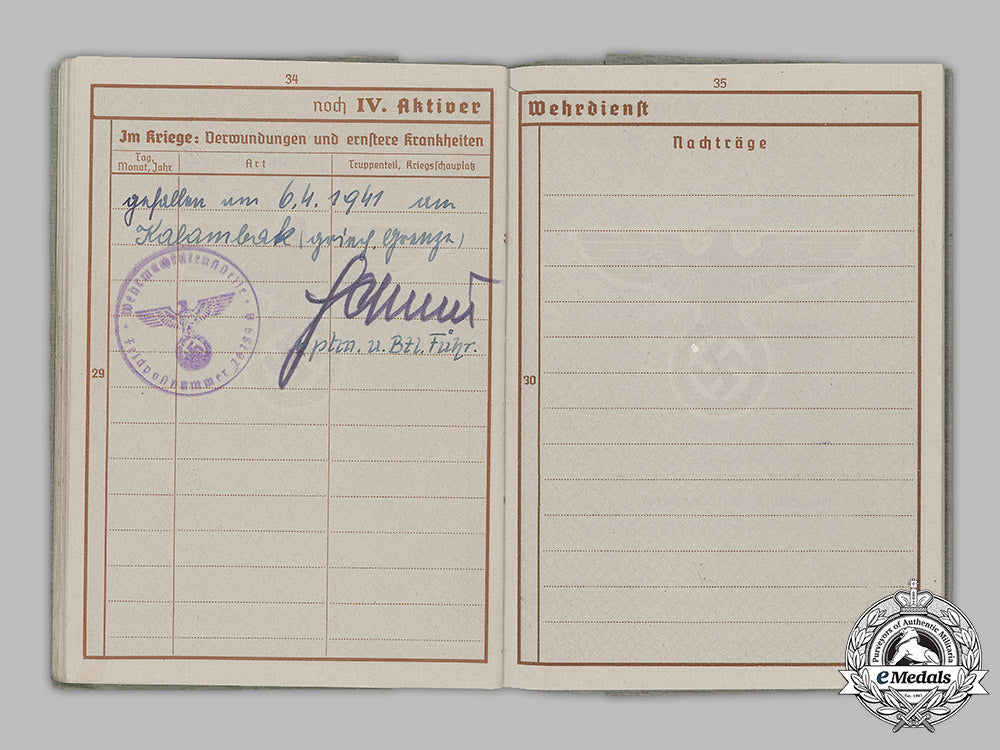 34
noch IV. Aktiver
Im Kriege: Verwundungen und ernstere Krankheiten
Tag, Monat, Jahr
Art
Truppenteil, Kriegsschauplatz
gefallen am 6.4.1941 am
Kalambak (griech. Grenze)
Hptm. u. Btl. Führ.
Feldpostnummer
29
35
Wehrdienst
Nachträge
30
Purveyors of Authentic Militaria
eMedals